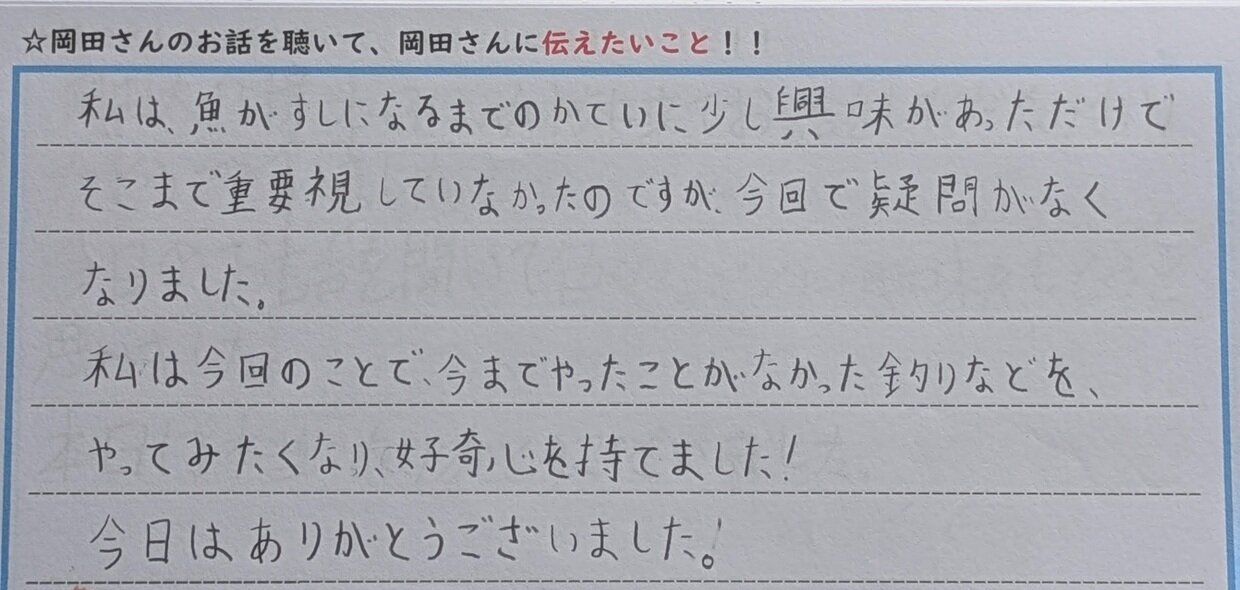 ☆岡田さんのお話を聴いて、岡田さんに伝えたいこと！！
私は、魚がすしになるまでのかていに少し興味があっただけで
そこまで重要視していなかったのですが、今回で疑問がなく
なりました。
私は今回のことで、今までやったことがなかった釣りなどを、
やってみたくなり、好奇心を持てました!
今日はありがとうございました。!